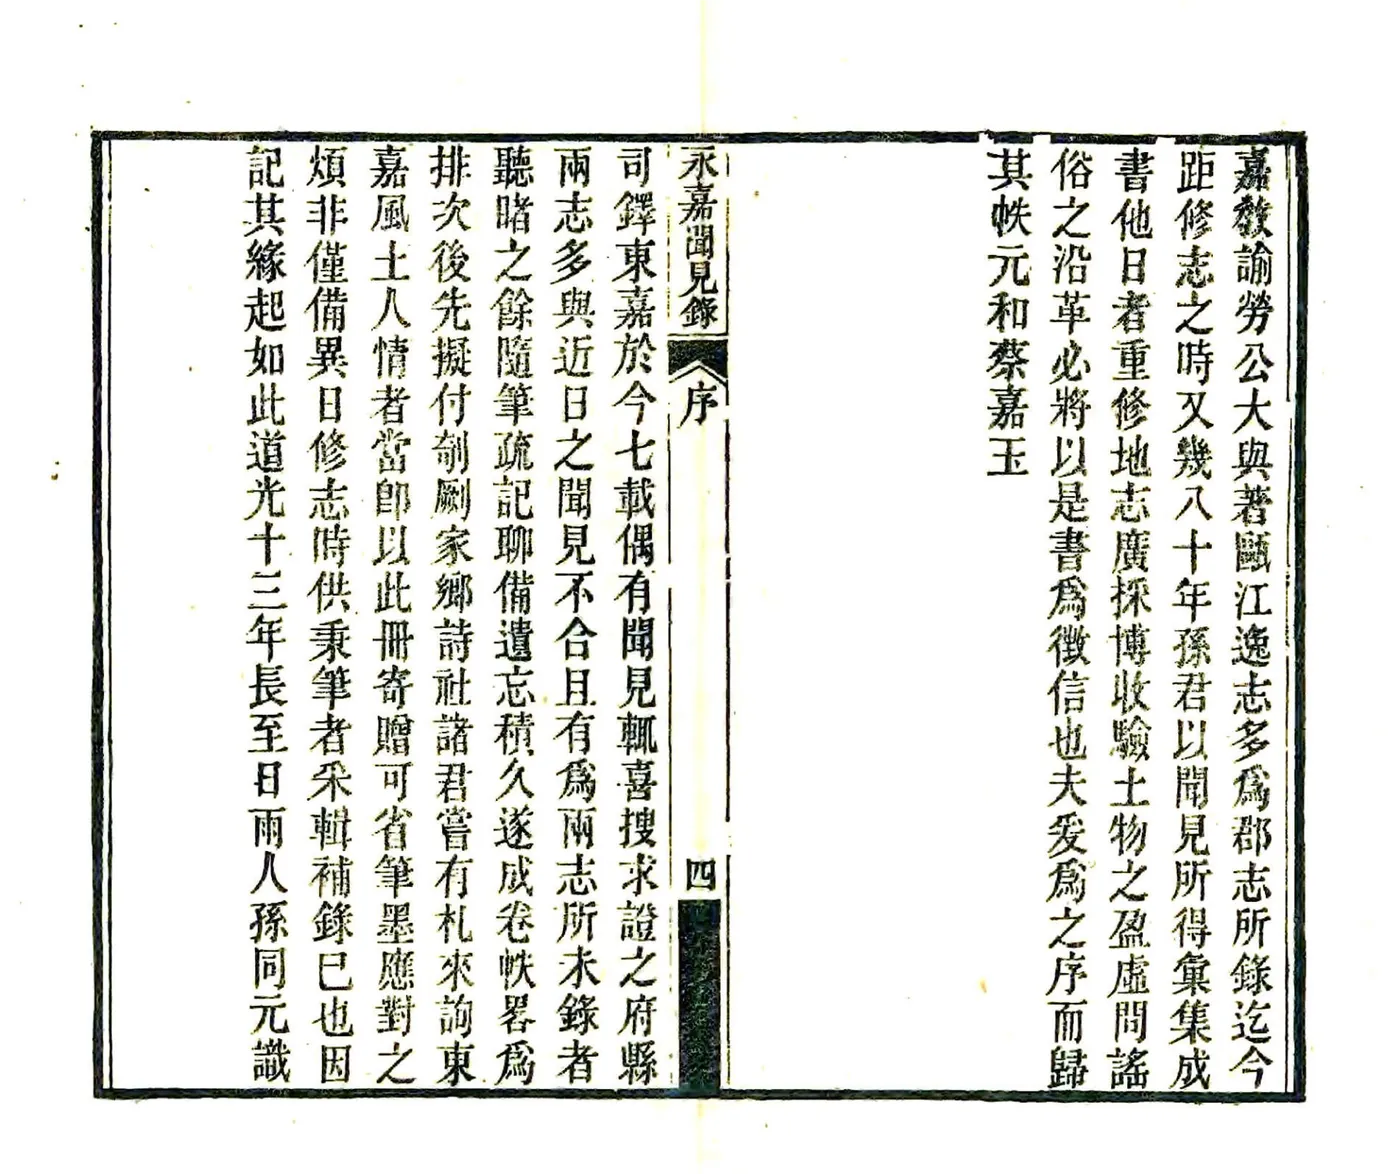 嘉教諭勞公大與著甌江逸志多爲郡志所錄迄今
距修志之時又幾八十年孫君以聞見所得彙集成
書他日者重修地志廣採博收驗土物之盈虛問謠
俗之沿革必將以是書爲徵信也夫爰爲之序而歸
其帙元和蔡嘉玉
永嘉聞見錄
序
四
司鐸東嘉於今七載偶有聞見輒喜搜求證之府縣
兩志多與近日之聞見不合且有爲兩志所未錄者
聽睹之餘隨筆疏記聊備遺忘積久遂成卷帙畧爲
排次後先擬付剞劂家鄉詩社諸君嘗有札來詢東
嘉風土人情者當卽以此冊寄贈可省筆墨應對之
煩非僅備異日修志時供秉筆者采輯補錄已也因
記其緣起如此道光十三年長至日雨人孫同元識